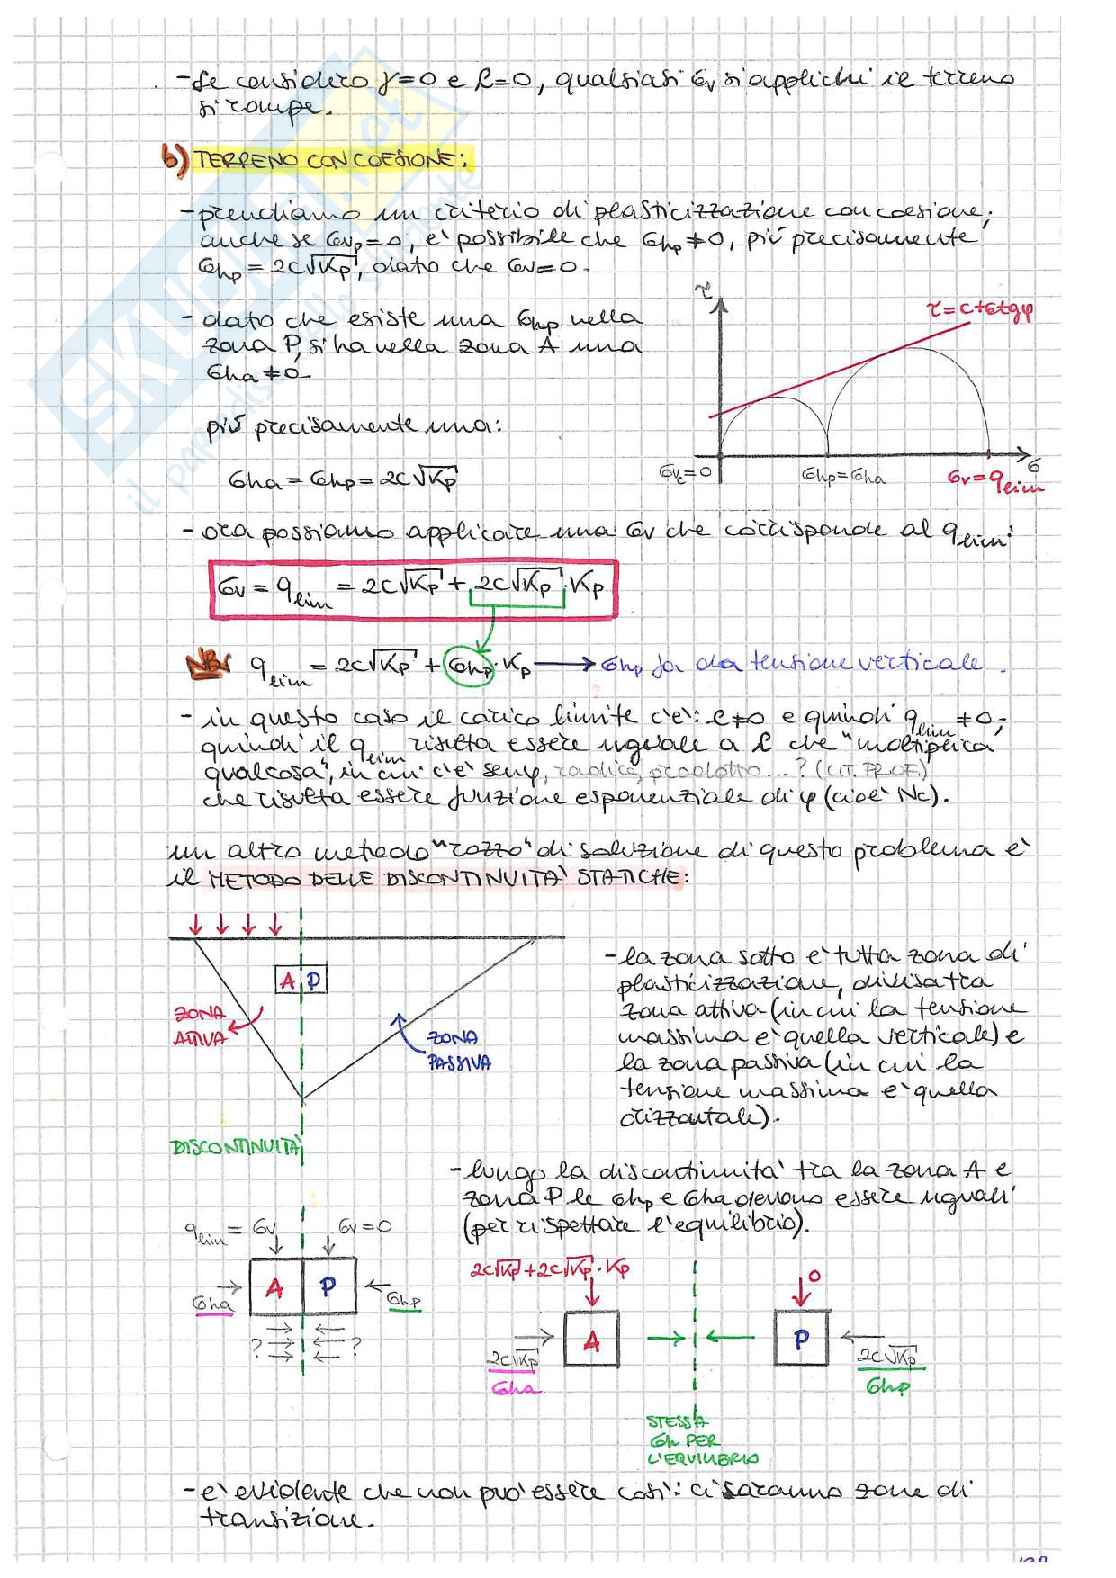 - se considero γ=0 e c=0, qualsiasi σv si applichi il terreno
si rompe.
b) TERRENO CON COESIONE:
- prendiamo un criterio di plasticizzazione con coesione;
anche se σvp=0, e' possibile che σhp≠0, più precisamente
σhp = 2c√Kp, dato che σv=0.
- dato che esiste una σhp nella
zona P, si ha nella zona A una
σha ≠0.
più precisamente una:
σha = σhp = 2c√Kp
τ
τ=c+σtgφ
σv=0
σhp=σha
σv=qlim
σ
- ora possiamo applicare una σv che corrisponde al qlim:
σv = qlim = 2c√Kp + 2c√Kp · Kp
NB: qlim = 2c√Kp + σhp · Kp → σhp fa da tensione verticale.
- in questo caso il carico limite c'è: c≠0 e quindi qlim ≠0;
quindi il qlim risulta essere uguale a c che "moltiplica
qualcosa", in cui c'è senφ, radice, prodotto...? (CIT. PROF)
che risulta essere funzione esponenziale di φ (cioè Nc).
un altro metodo "rozzo" di soluzione di questo problema è
il METODO DELLE DISCONTINUITA' STATICHE:
A P
ZONA
ATTIVA
ZONA
PASSIVA
DISCONTINUITÀ
- la zona sotto e' tutta zona di
plasticizzazione, divisa tra
zona attiva (in cui la tensione
massima e' quella verticale) e
la zona passiva (in cui la
tensione massima e' quella
orizzontale).
- lungo la discontinuita' tra la zona A e
zona P le σhp e σha devono essere uguali
(per rispettare l'equilibrio).
qlim = σv
σv=0
σha
A P
σhp
? ?
2c√Kp + 2c√Kp · Kp
0
A
P
2c√Kp
σha
2c√Kp
σhp
STESSA
σh PER
L'EQUILIBRIO
- e' evidente che non puo' essere cosi': ci saranno zone di
transizione.
SKUOLA.net